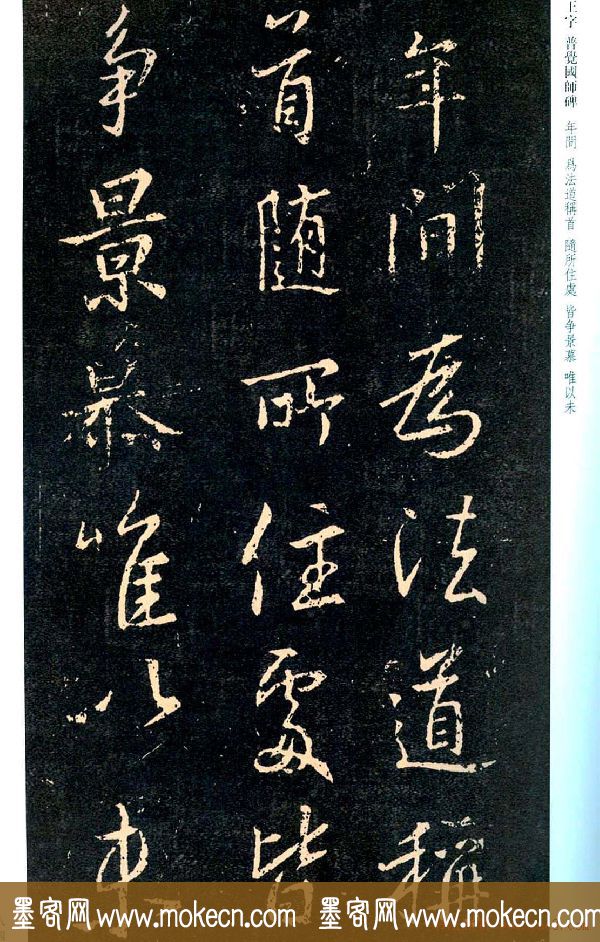 年間爲法道稱
首隨所住處皆
争景慕唯以未
王字 普覺國師碑 年間 爲法道稱首 隨所住處 皆争景慕 唯以未
墨客网 www.mokecn.com 墨客网 www.mokecn.com